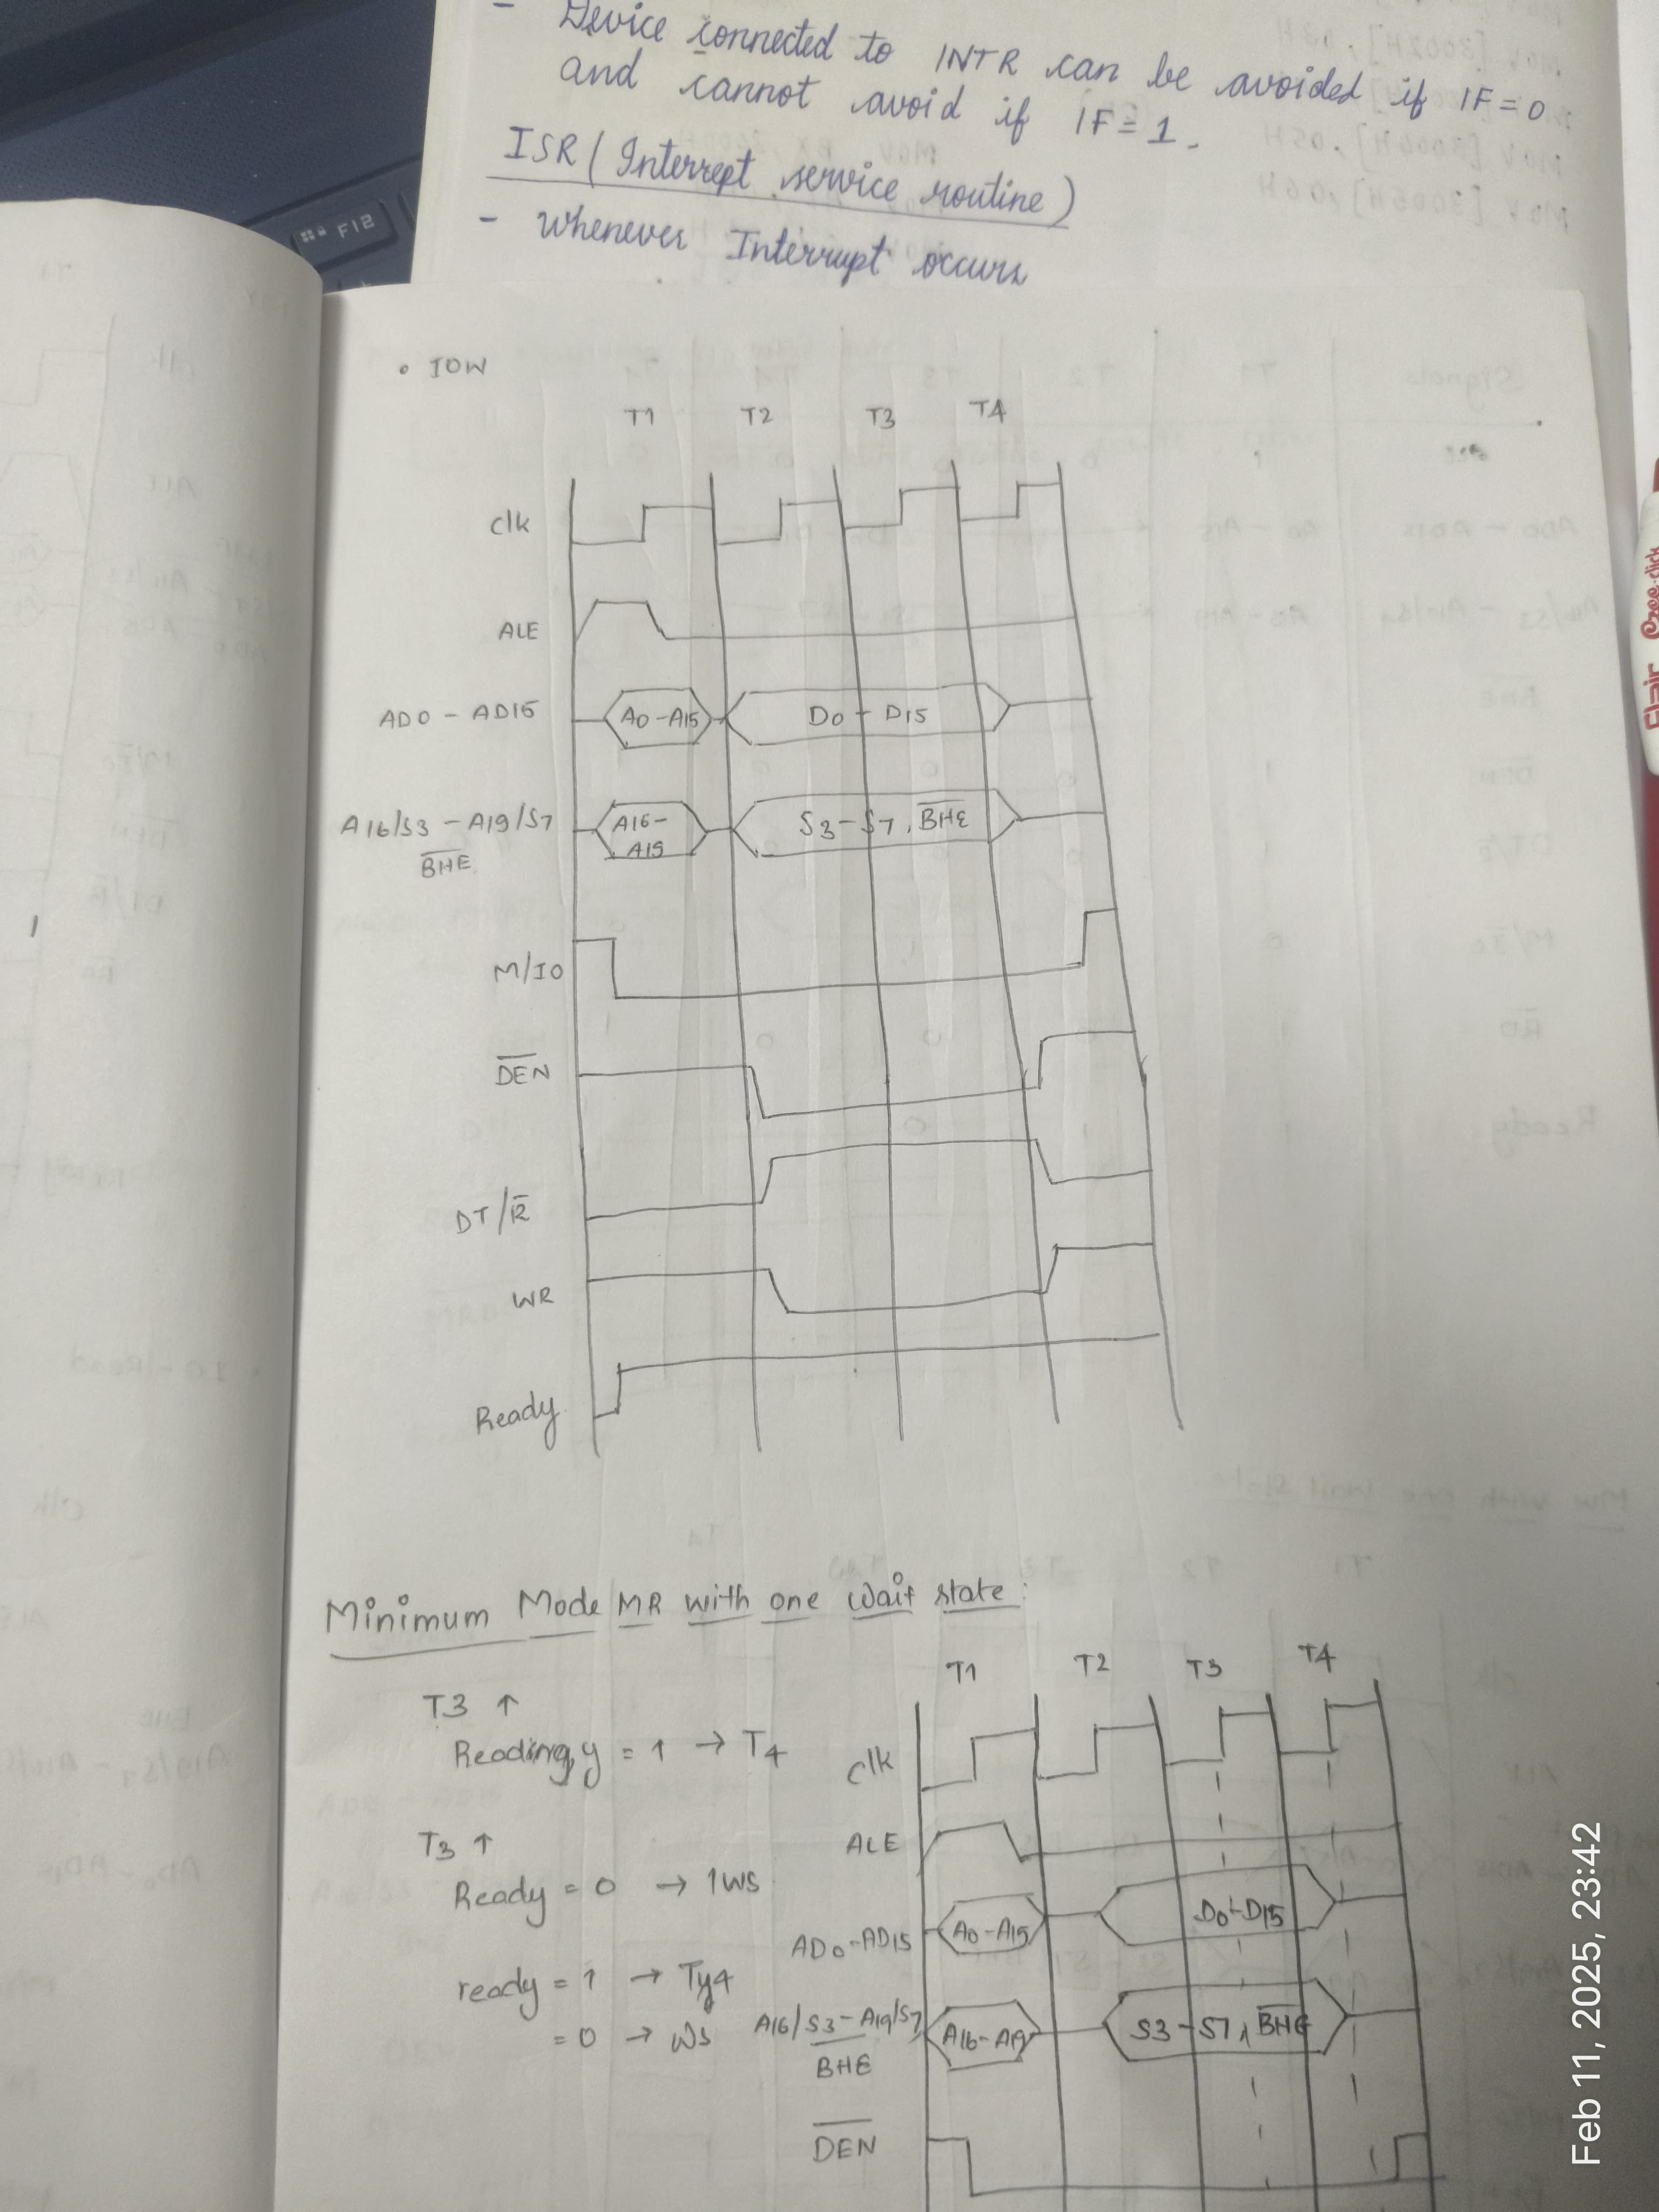 - Device connected to INTR can be avoided if IF=0
and cannot avoid if IF=1.
ISR (Interrept service routine)
- Whenever Interrupt occurs
F12
• IOW
T1 T2 T3 T4
clk
ALE
AD0 - AD15
A0-A15
D0-D15
A16/S3-A19/S7
BHE
A16-
A19
S3-S7, BHE
M/IO
DEN
DT/R
WR
Ready
Minimum Mode MR with one Wait state:
T3 ↑
= 1 → T4
T3 ↑
Ready = 0 → 1WS
ready = 1 →
= 0 → WS
T1 T2 T3 T4
clk
ALE
AD0-AD15
A0-A15
D0-D15
A16/S3-A19/S7
BHE
A16-A19
S3-S7, BHE
DEN
Flair
Feb 11, 2025, 23:42